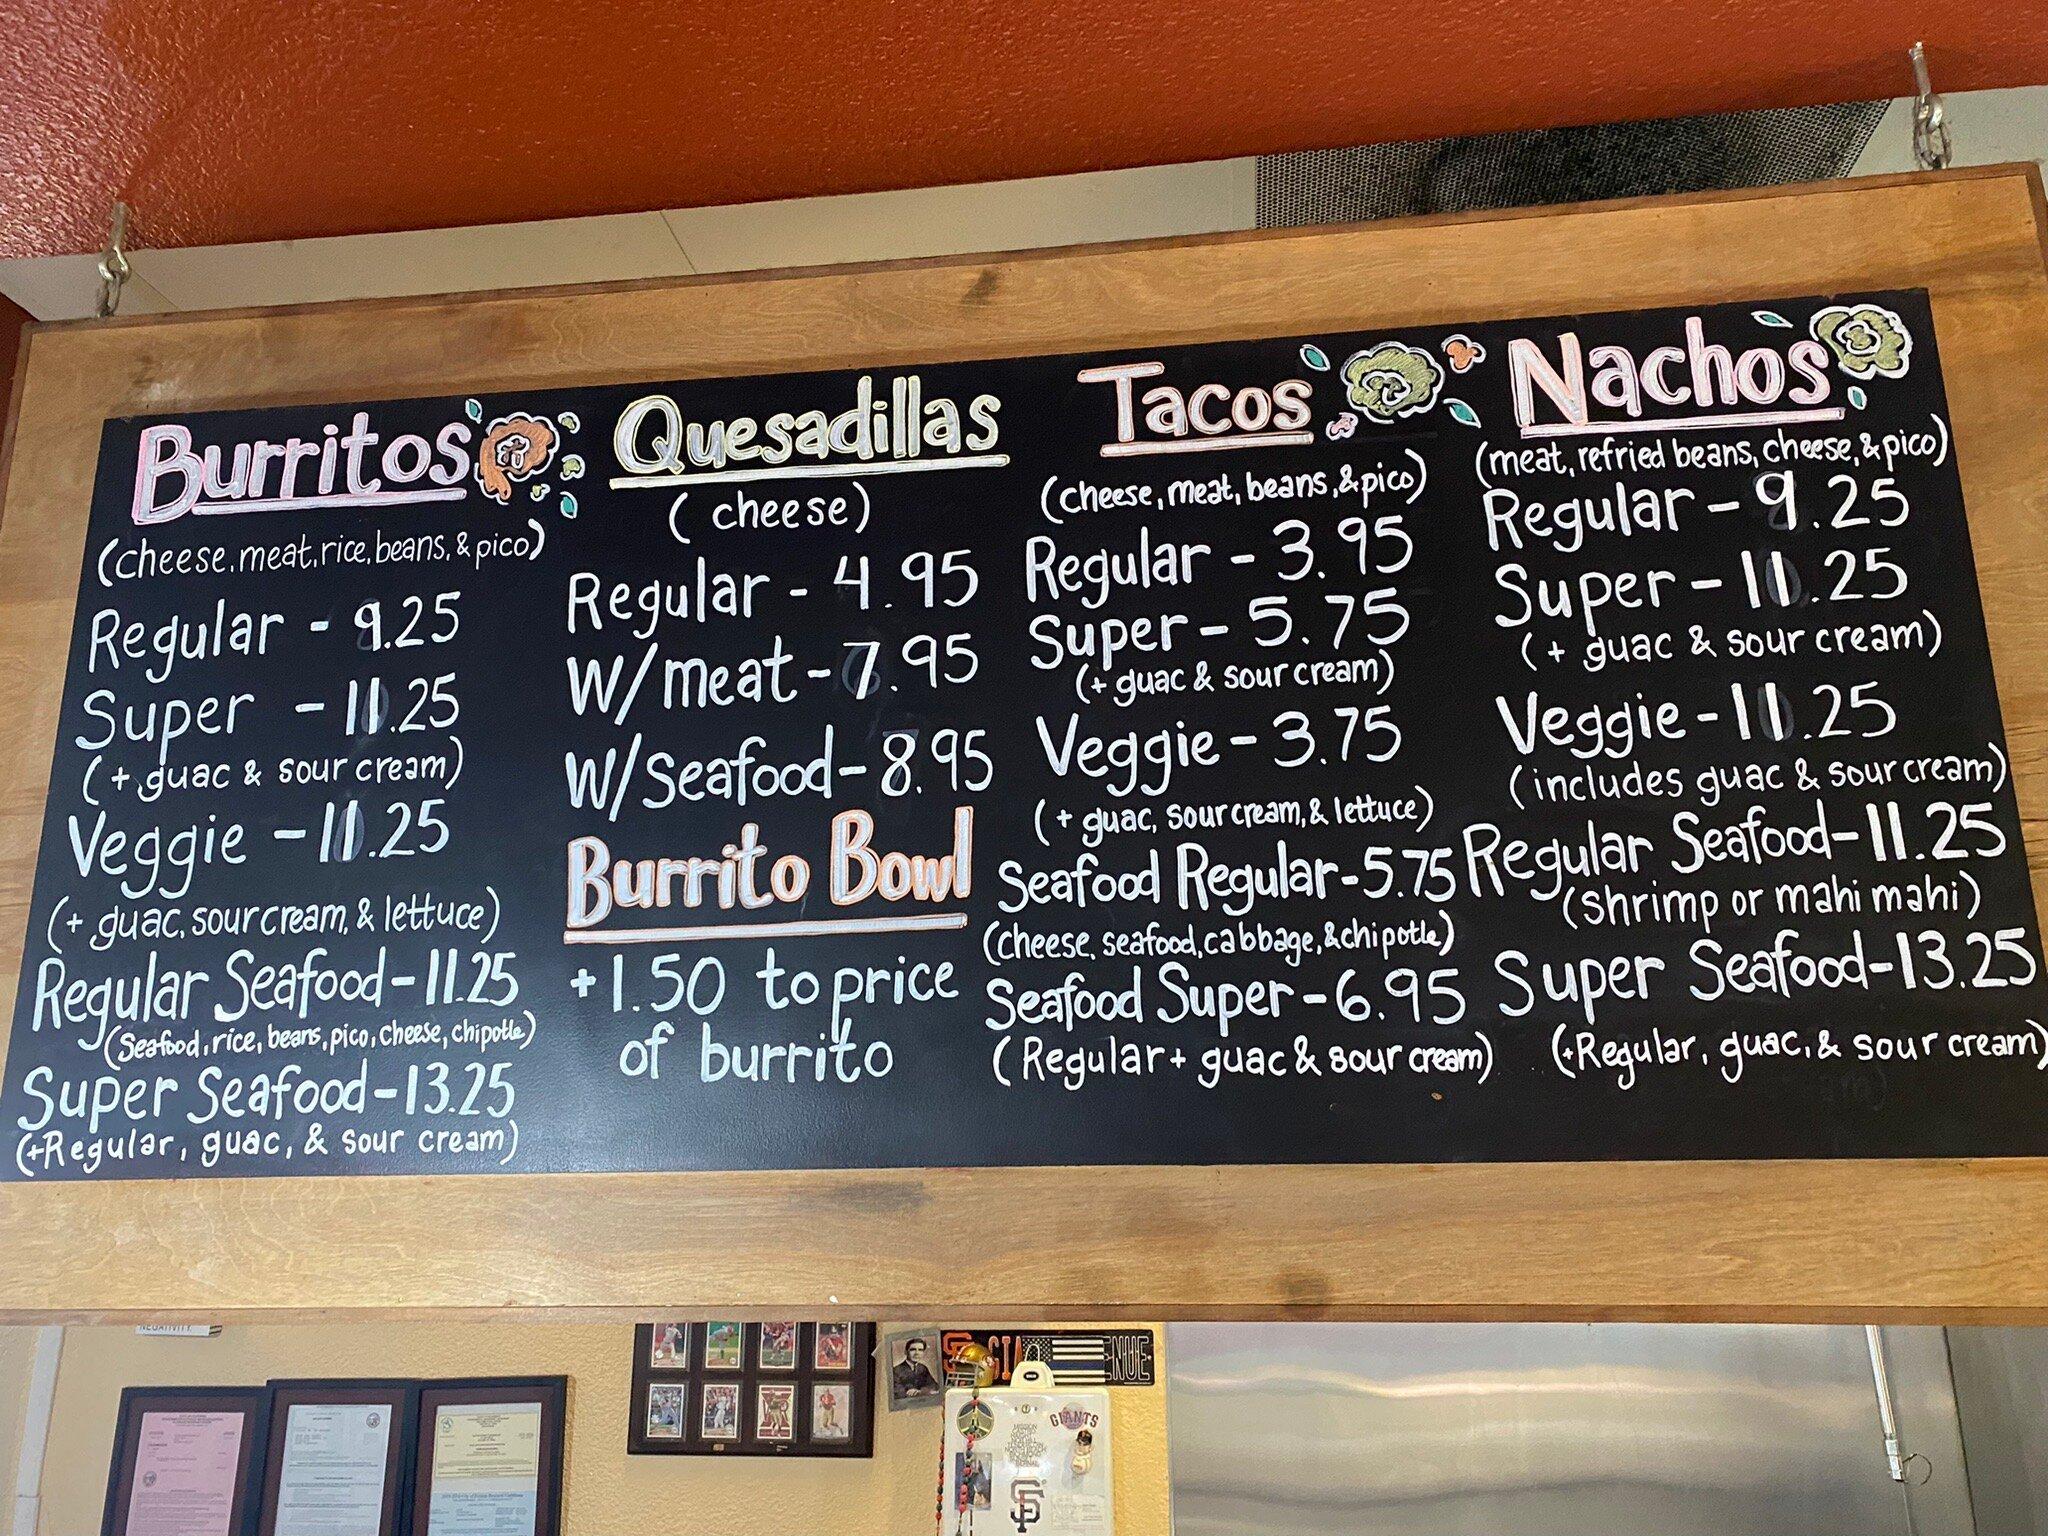 Burritos
(cheese, meat, rice, beans, & pico)
Regular - 9.25
Super - 11.25
(+ guac & sour cream)
Veggie - 11.25
(+ guac, sour cream, & lettuce)
Regular Seafood - 11.25
(Seafood, rice, beans, pico, cheese, chipotle)
Super Seafood - 13.25
(+Regular, guac, & sour cream)
Quesadillas
(cheese)
Regular - 4.95
W/meat - 7.95
W/Seafood - 8.95
Burrito Bowl
+1.50 to price
of burrito
Tacos
(cheese, meat, beans, & pico)
Regular - 3.95
Super - 5.75
(+ guac & sour cream)
Veggie - 3.75
(+ guac, sour cream, & lettuce)
Seafood Regular - 5.75
(cheese, seafood, cabbage, & chipotle)
Seafood Super - 6.95
(Regular + guac & sour cream)
Nachos
(meat, refried beans, cheese, & pico)
Regular - 9.25
Super - 11.25
(+ guac & sour cream)
Veggie - 11.25
(includes guac & sour cream)
Regular Seafood - 11.25
(shrimp or mahi mahi)
Super Seafood - 13.25
(+Regular, guac, & sour cream)
NEGATIVITY.
SF GIA ENUE
GIANTS
SF